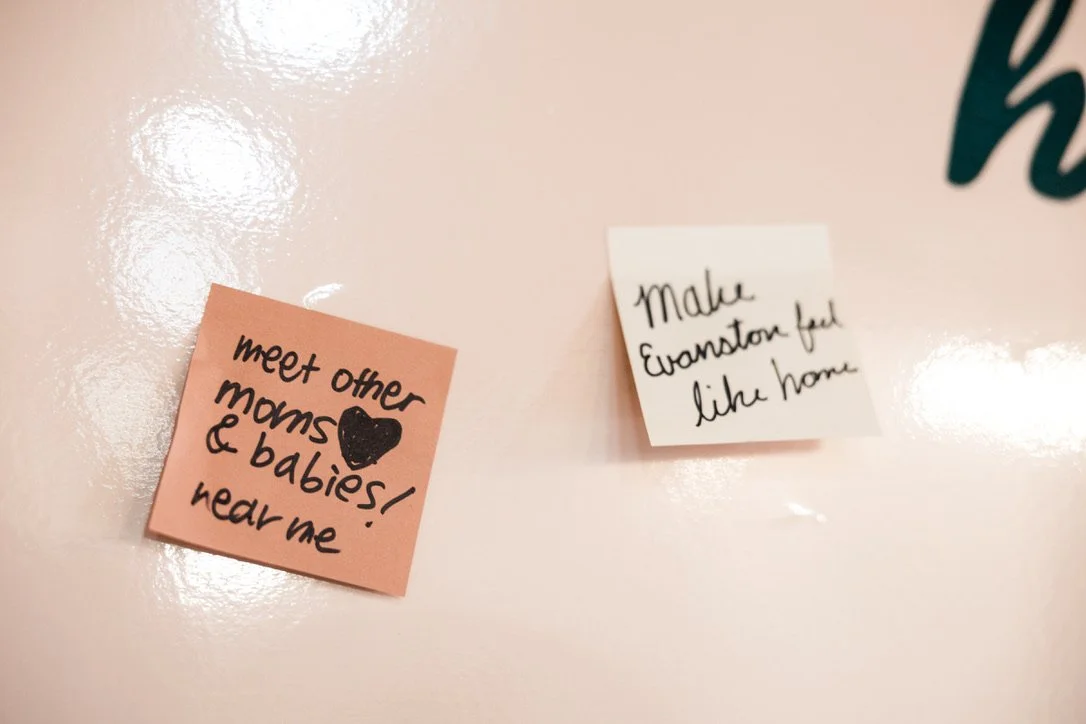 meet other
moms
& babies!
near me
Make
Evanston feel
like home
h